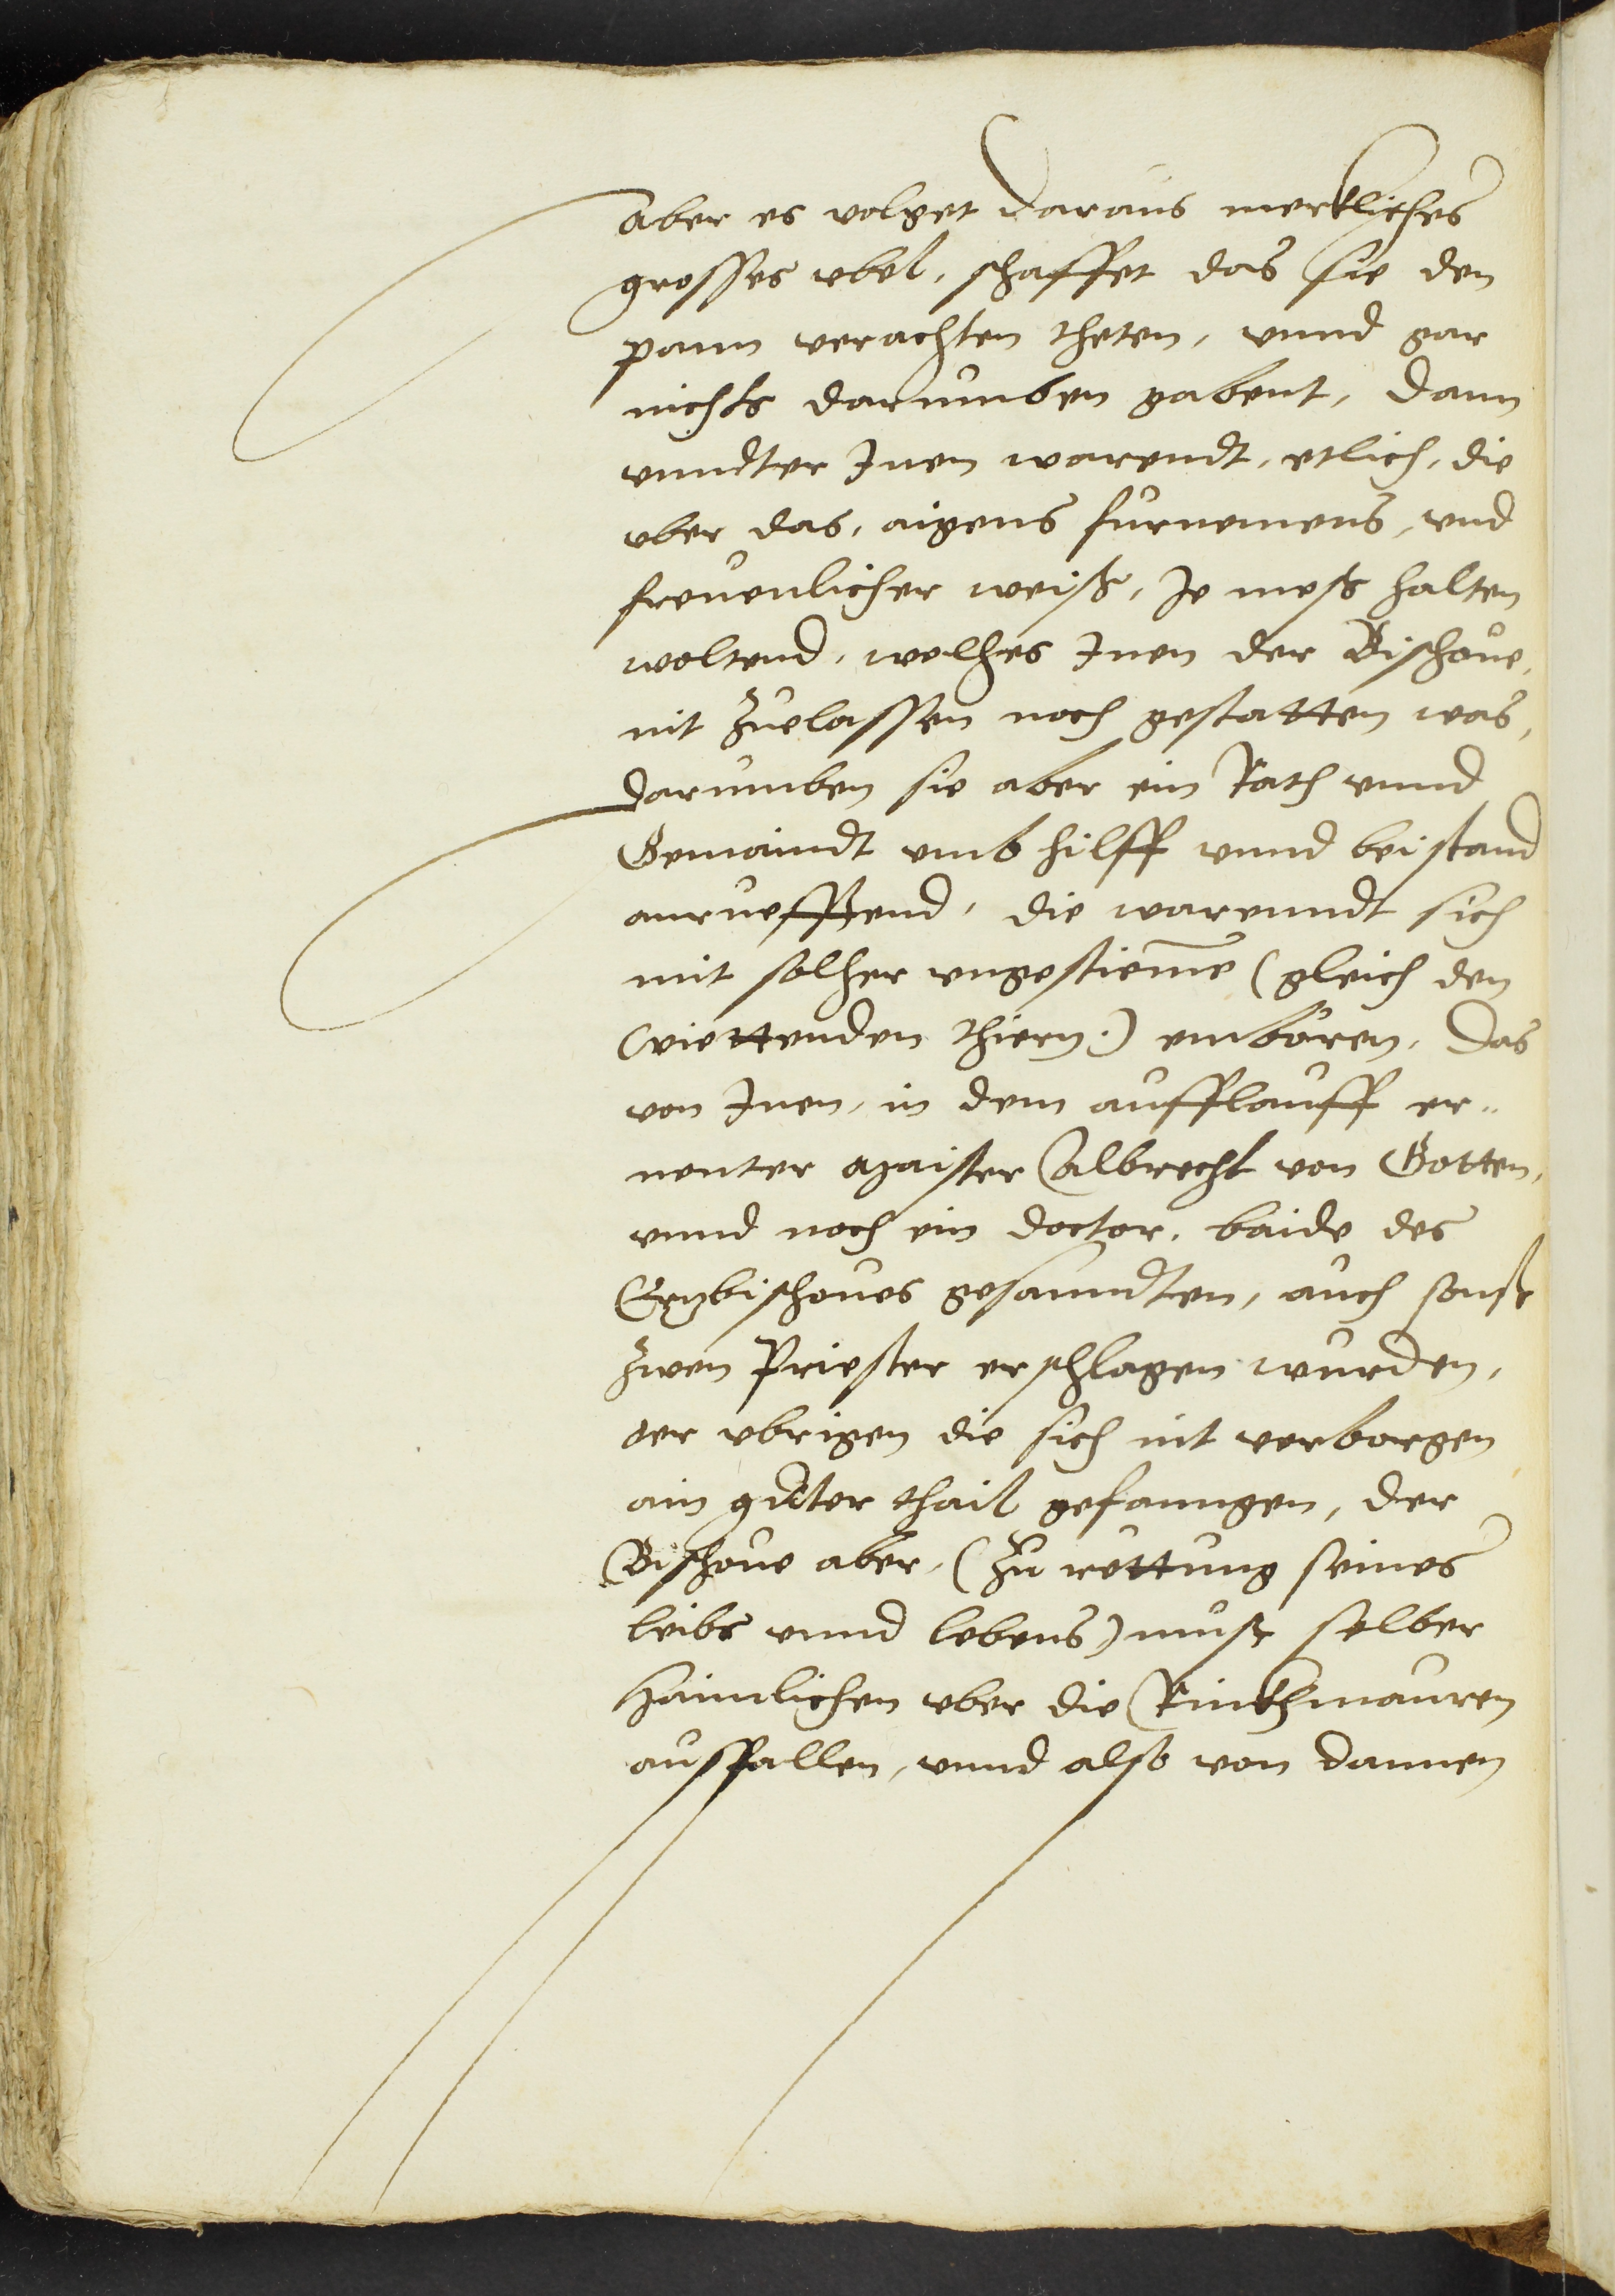 aber es volget daraus merkliches
grosses vbel, schaffet das sie den
pann verachten theten, vnnd gar
nichts darumben gabent, dann
vnndter Inen warendt, etlich, die
vber das, aigens furnemens, vnd
freuenlicher weiß, Je meß halten
woltend, welhes Inen der Bischoue,
nit zuelassen noch gestatten was,
darumben sie aber ein Rath vnnd
Gemaindt vmb hilff vnnd beistand
anrueffend, die warenndt sich
mit solher vngestieme (gleich den
wiettenden thiern:) embören, das
von Inen, in dem aufflauff er„
nenter Maister Albrecht von Gotten,
vnnd noch ein doctor, baide des
Erzbischoues gesanndten, auch sonst
zwen Priester erschlagen wurden,
der vbrigen die sich nit verborgen
ain guter thail gefanngen, der
Bischoue aber, (zu rettung seines
leibs vnnd lebens) must selber
Haimlichen vber die Rinkhmauren
ausfallen, vnnd also von dannen